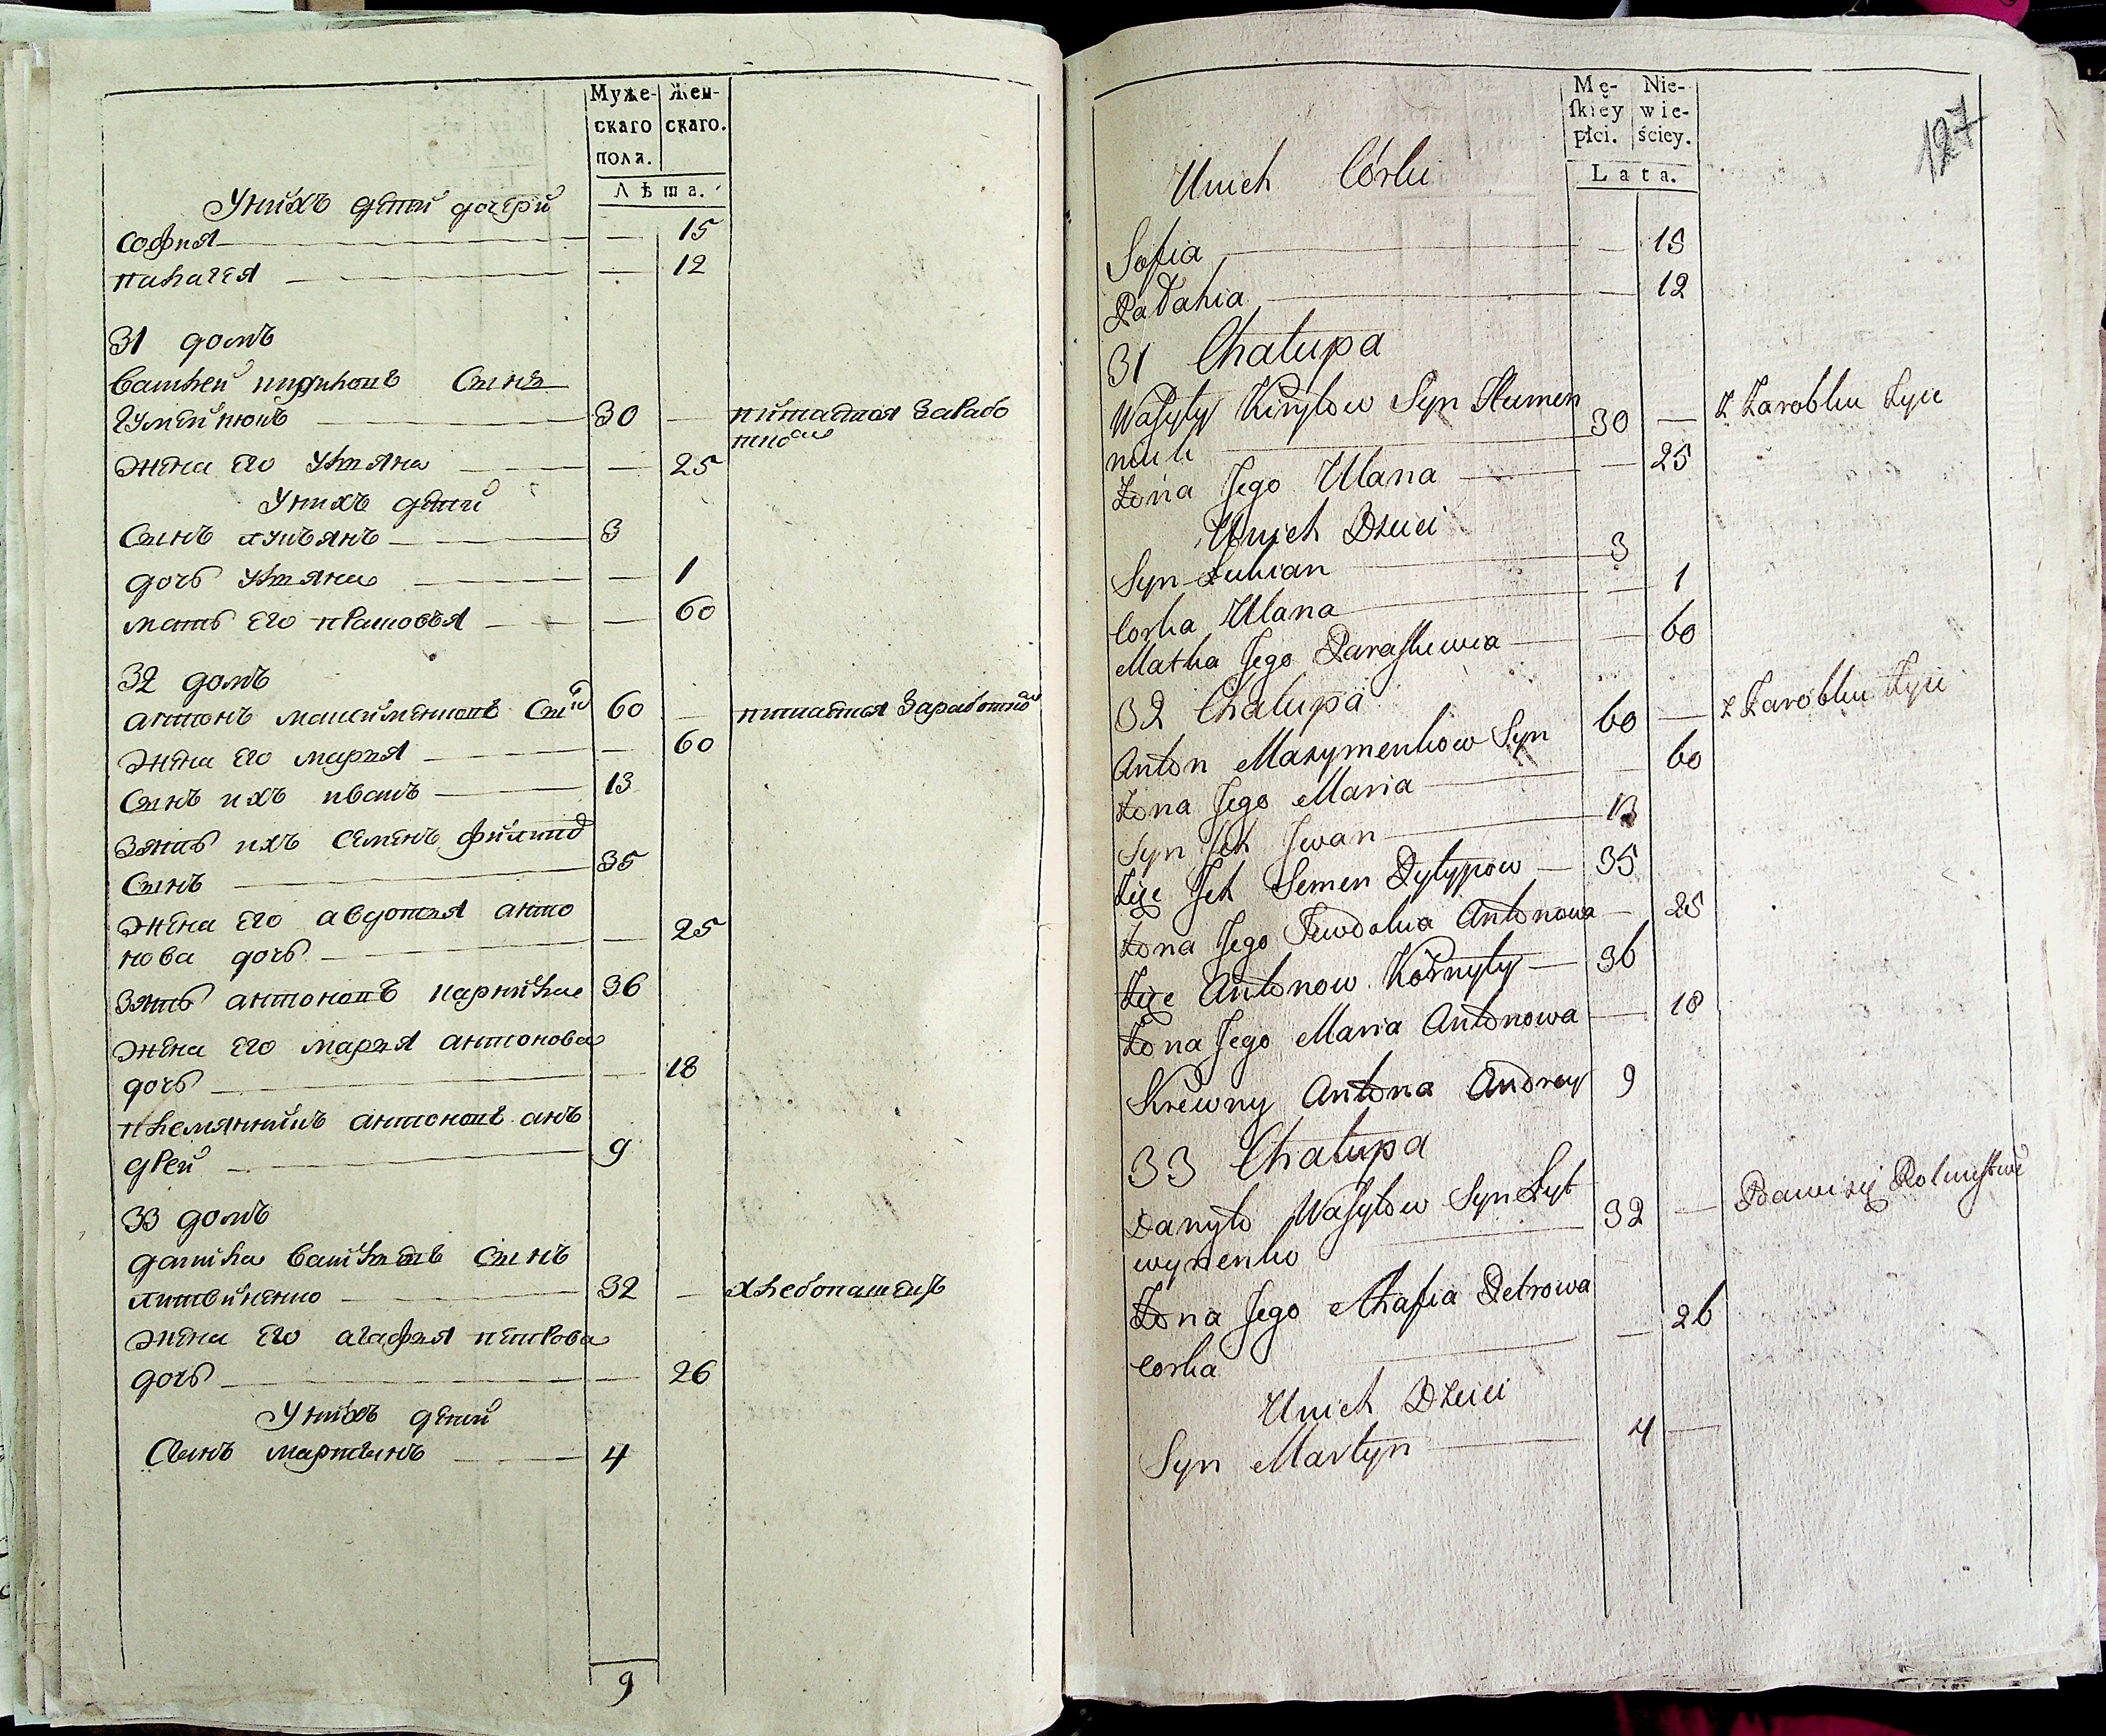 Муже- Жен-
скаго скаго.
пола.
Лѣта.
У нихъ дѣтей дочери
София — 15
Палагея — 12
31 домъ
Василей Кириловъ Сынъ
Гуменюкъ — 30 — питается зарабо
тко
Жена Его Уляна — 25
У нихъ дѣтей
Сынъ Лукъянъ — 3
дочь Уляна — 1
мать Его Прасковья — 60
32 домъ
Антонъ Максименковъ Сынъ 60 — питается Заработко
Жена Его Марья — 60
Сынъ ихъ Иванъ — 13
Зять ихъ Семенъ Филипо
Сынъ — 35
Жена Его Авдотья Анто
нова дочь — 25
Зять Антоновъ Карнило 36
Жена Его Марья Антонова
дочь — 18
племянникъ Антоновъ Анъ
дрей — 9
33 домъ
Данила Василевъ Сынъ
Литвиненко — 32 — хлебопашецъ
Жена Его Агафья Петрова
дочь — 26
У нихъ детей
Сынъ Мартынъ — 4
9
127
Mę- Nie-
ſkiey wie-
płci. ściey.
Lata.
Unich Córki
Sofia — 15
Pałahia — 12
31 Chałupa
Wasyly Kiryłow Syn Humen
niuk — 30 — z Zarobku Żyie
Żona Jego Ulana — 25
Unich Dzieci
Syn Łukian — 3
Corka Ulana — 1
Matka Jego Paraskiewia — 60
32 Chałupa
Anton Maxymenkow Syn 60 — z Zarobku Żyie
Żona Jego Maria — 60
Syn Ich Jwan — 13
Zięć Ich Semen Pylypow — 35
Żona Jego Jewdokia Antonowa — 25
Zięć Antonow Kornyły — 36
Żona Jego Maria Antonowa — 18
Krewny Antona Andrey 9
33 Chałupa
Danyło Wasylow Syn Łyt
wynenko — 32 — Bawi się Rolnictwē
Żona Jego Ahafia Petrowa
Corka — 26
Unich Dzieci
Syn Martyn — 4 —